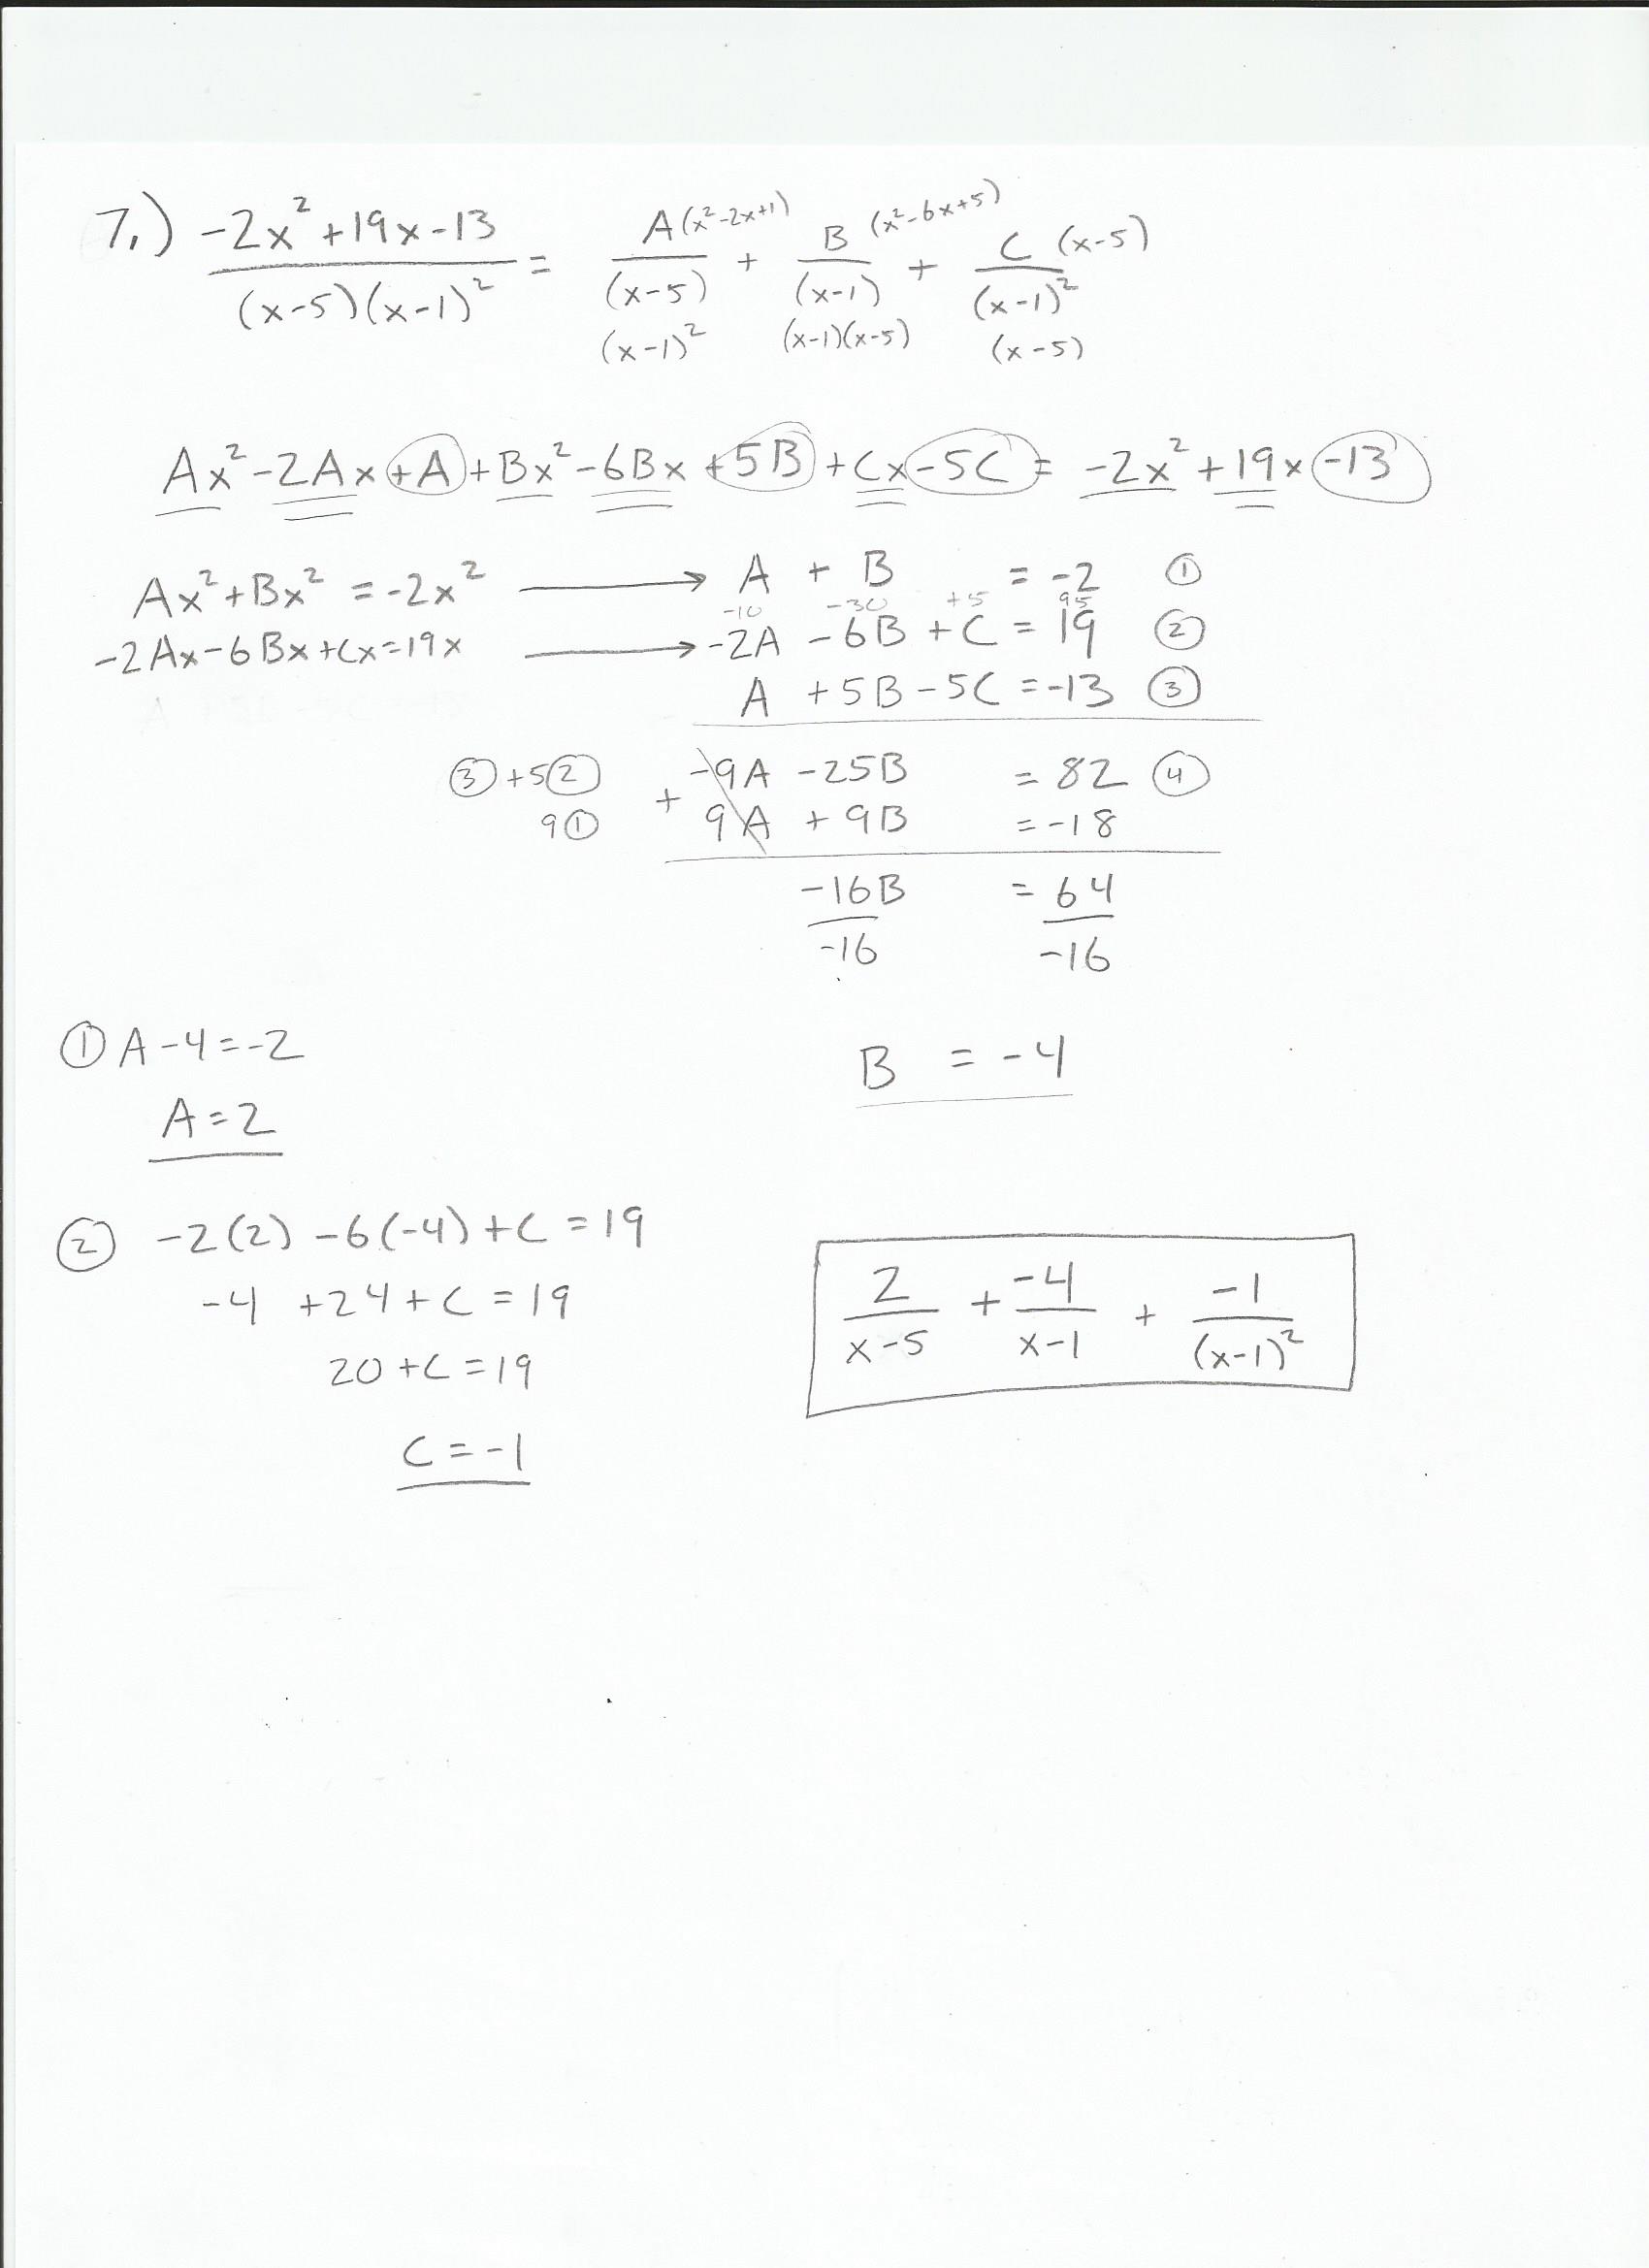 7.) -2x²+19x-13 / (x-5)(x-1)² = A(x²-2x+1) / (x-5) + B(x²-6x+5) / (x-1) + C(x-5) / (x-1)²
(x-1)² (x-1)(x-5) (x-5)
Ax²-2Ax+A+Bx²-6Bx+5B+Cx-5C = -2x²+19x-13
Ax²+Bx² = -2x² → A + B = -2 ①
-10 -30 +5 95
-2Ax-6Bx+Cx=19x → -2A -6B +C = 19 ②
A +5B -5C = -13 ③
③+5② -9A -25B = 82 ④
9① + 9A + 9B = -18
-16B = 64
-16 -16
① A-4=-2
B = -4
A=2
② -2(2) -6(-4) +C = 19
-4 +24+C = 19
20+C=19
C=-1
2 / x-5 + -4 / x-1 + -1 / (x-1)²